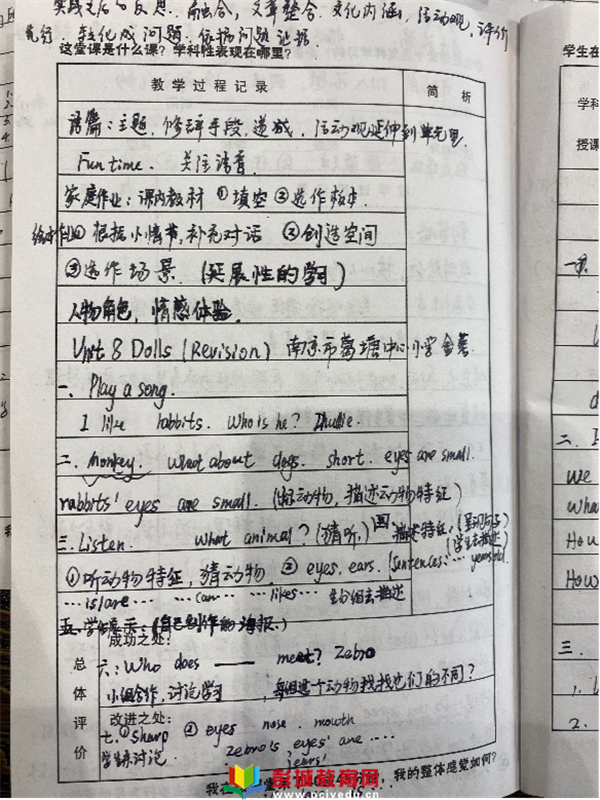 实践之后的反思. 融合, 文章整合. 文化内涵, 活动观, 评价
先行 转化成问题. 依据问题
这堂课是什么课？学科性表现在哪里？
教学过程记录 简析
语篇：主题, 修辞手段, 递减, 活动观延伸到单元里.
Fun time. 关注语音.
家庭作业：课内教材 ①填空 ②造作
绘本 ① 根据小情节, 补充对话 ②创造空间
③造作场景. (延展性的学习)
人物角色, 情感体验.
Unit 8 Dolls (Revision) 南京市葛塘中心小学
一. Play a song.
I like rabbits. Who is he?
二. monkey. what about dogs. short. eyes are small.
rabbits' eyes are small. (动物, 描述动物特征)
三. Listen. What animal? (猜听) 四. 描述特征：
(学生去描述)
①听动物特征, 猜动物. ② eyes. ears. (sentences: … years old.
… is/are … … can … … likes … 去描述
五. 学生展示：(自己制作的海报.)
成功之处：
六: Who does ____ meet? Zebra
小组合作, 讨论学习 , 每组选一个动物找找它们的不同？
总体评价
改进之处：
七. ① sharp ② eyes nose. mouth
学生来讨论. zebra's eyes are ….
ears'
我的整体感觉如何？
彭城教育网
www.pcjyedu.cn
学生在
学科
授课
一.
二. I
We
What
How
How
三.
1.
2.